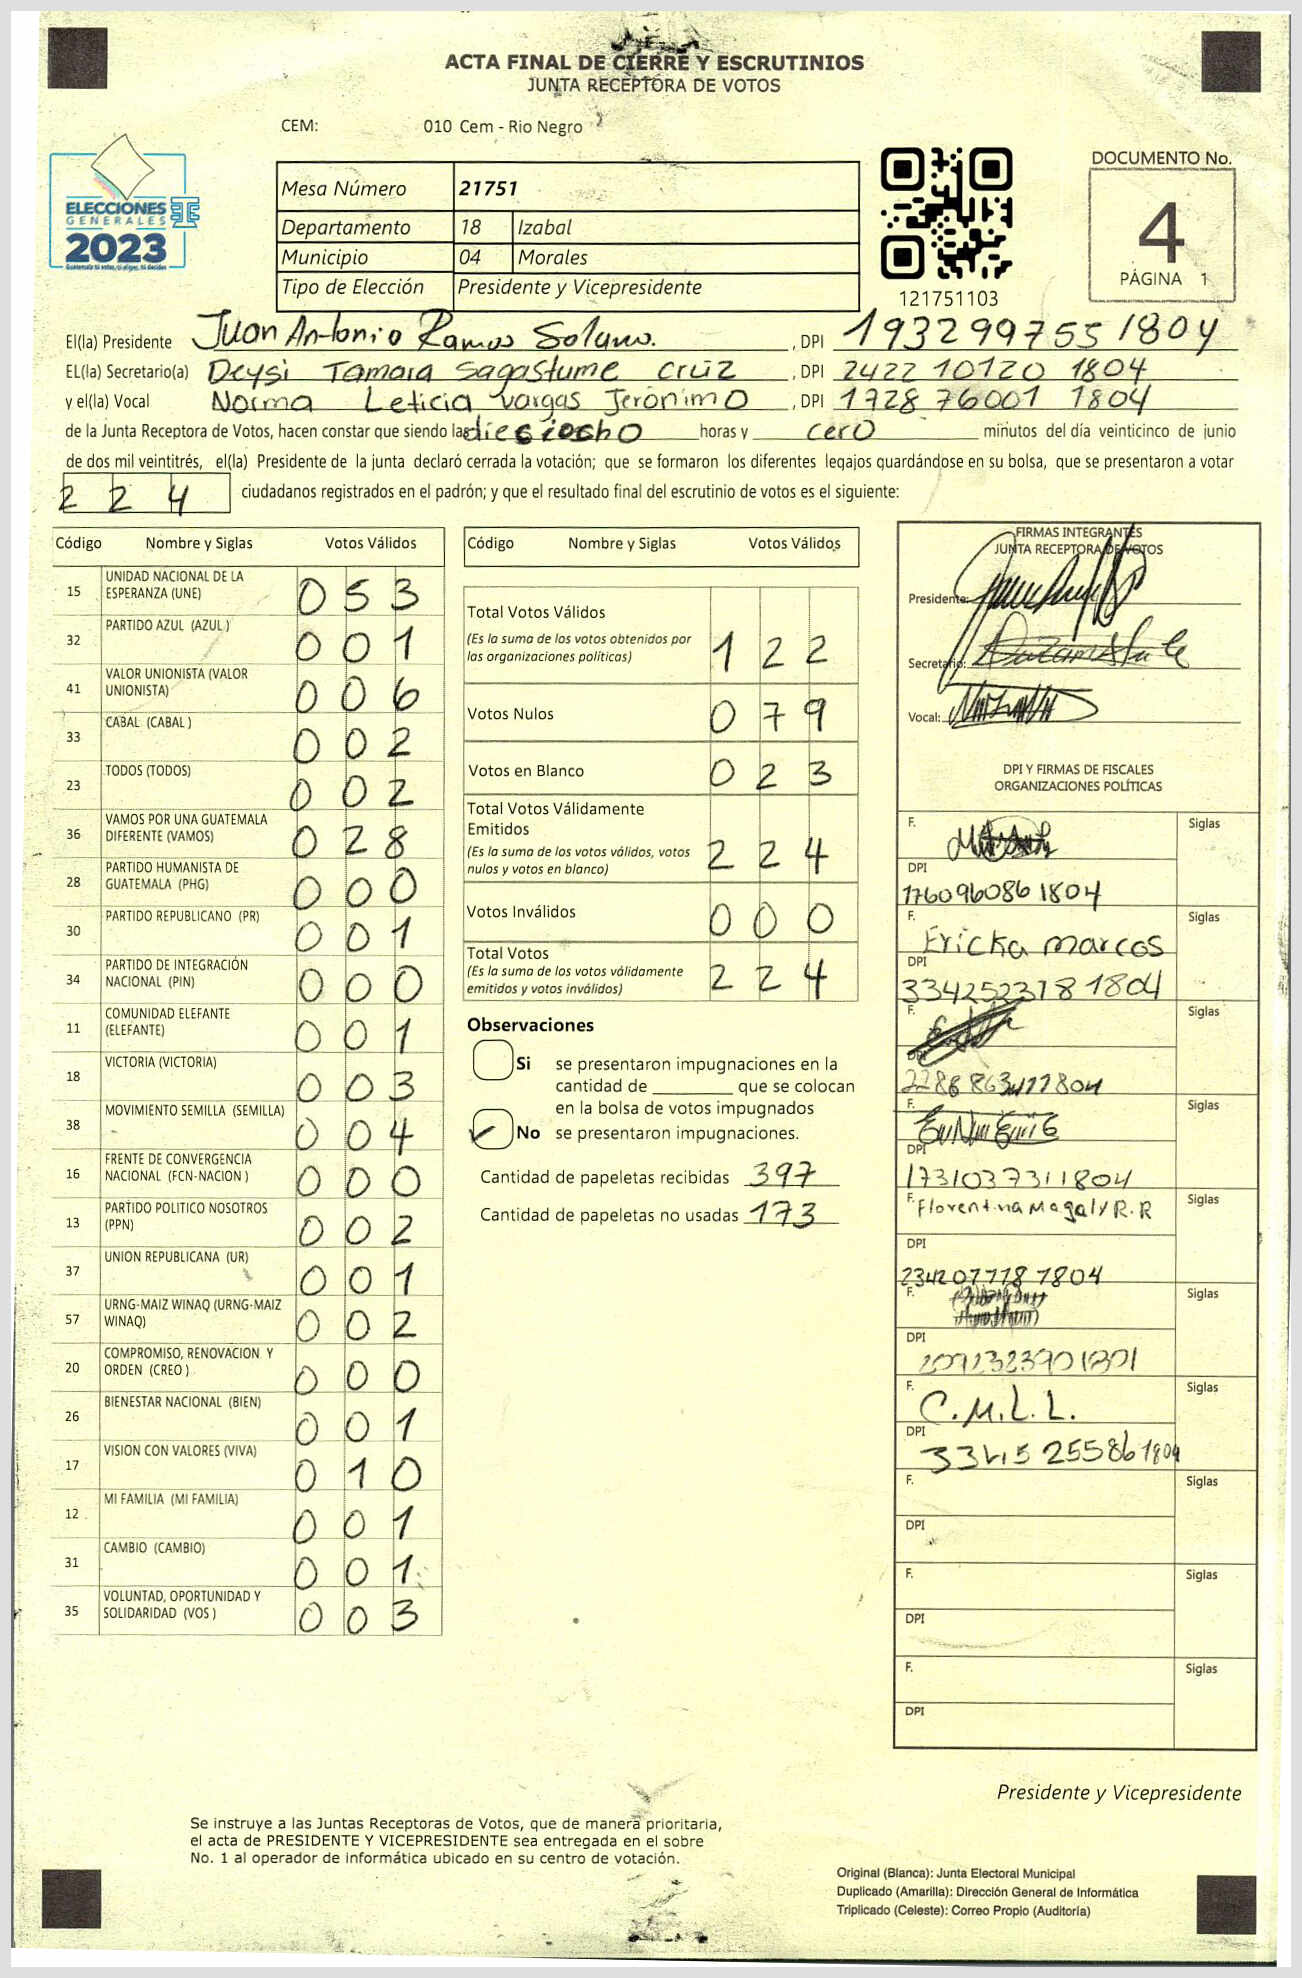 ACTA FINAL DE CIERRE Y ESCRUTINIOS
JUNTA RECEPTORA DE VOTOS
CEM: 010 Cem - Rio Negro
ELECCIONES
GENERALES
2023
Guatemala tú votas, tú eliges, tú decides
Mesa Número 21751
Departamento 18 Izabal
Municipio 04 Morales
Tipo de Elección Presidente y Vicepresidente
121751103
DOCUMENTO No.
4
PÁGINA 1
El(la) Presidente Juan Antonio Ramos Solano. , DPI 1932997551804
EL(la) Secretario(a) Deysi Tamara Sagastume Cruz , DPI 2422 10120 1804
y el(la) Vocal Norma Leticia Vargas Jerónimo , DPI 1728 76001 1804
de la Junta Receptora de Votos, hacen constar que siendo las dieciocho horas y cero minutos del día veinticinco de junio
de dos mil veintitrés, el(la) Presidente de la junta declaró cerrada la votación; que se formaron los diferentes legajos guardándose en su bolsa, que se presentaron a votar
224 ciudadanos registrados en el padrón; y que el resultado final del escrutinio de votos es el siguiente:
Código Nombre y Siglas Votos Válidos
15 UNIDAD NACIONAL DE LA ESPERANZA (UNE) 053
32 PARTIDO AZUL (AZUL ) 001
41 VALOR UNIONISTA (VALOR UNIONISTA) 006
33 CABAL (CABAL ) 002
23 TODOS (TODOS) 002
36 VAMOS POR UNA GUATEMALA DIFERENTE (VAMOS) 028
28 PARTIDO HUMANISTA DE GUATEMALA (PHG) 000
30 PARTIDO REPUBLICANO (PR) 001
34 PARTIDO DE INTEGRACIÓN NACIONAL (PIN) 000
11 COMUNIDAD ELEFANTE (ELEFANTE) 001
18 VICTORIA (VICTORIA) 003
38 MOVIMIENTO SEMILLA (SEMILLA) 004
16 FRENTE DE CONVERGENCIA NACIONAL (FCN-NACION ) 000
13 PARTIDO POLITICO NOSOTROS (PPN) 002
37 UNION REPUBLICANA (UR) 001
57 URNG-MAIZ WINAQ (URNG-MAIZ WINAQ) 002
20 COMPROMISO, RENOVACION Y ORDEN (CREO ) 000
26 BIENESTAR NACIONAL (BIEN) 001
17 VISION CON VALORES (VIVA) 010
12 MI FAMILIA (MI FAMILIA) 001
31 CAMBIO (CAMBIO) 001
35 VOLUNTAD, OPORTUNIDAD Y SOLIDARIDAD (VOS ) 003
Código Nombre y Siglas Votos Válidos
Total Votos Válidos
(Es la suma de los votos obtenidos por las organizaciones políticas) 122
Votos Nulos 079
Votos en Blanco 023
Total Votos Válidamente Emitidos
(Es la suma de los votos válidos, votos nulos y votos en blanco) 224
Votos Inválidos 000
Total Votos
(Es la suma de los votos válidamente emitidos y votos inválidos) 224
Observaciones
Si se presentaron impugnaciones en la
cantidad de ________ que se colocan
en la bolsa de votos impugnados
No se presentaron impugnaciones.
Cantidad de papeletas recibidas 397
Cantidad de papeletas no usadas 173
FIRMAS INTEGRANTES
JUNTA RECEPTORA DE VOTOS
Presidente:
Secretario:
Vocal:
DPI Y FIRMAS DE FISCALES
ORGANIZACIONES POLÍTICAS
F. Siglas
DPI
1760960861804
F. Ericka Marcos Siglas
DPI
3342523181804
F. Siglas
DPI
F. Siglas
DPI
1731037311804
F. Florentina Magaly R.R Siglas
DPI
2342077181804
F. Siglas
DPI
F. C.M.L.L. Siglas
DPI
3345255861804
F. Siglas
DPI
F. Siglas
DPI
F. Siglas
DPI
Presidente y Vicepresidente
Se instruye a las Juntas Receptoras de Votos, que de manera prioritaria,
el acta de PRESIDENTE Y VICEPRESIDENTE sea entregada en el sobre
No. 1 al operador de informática ubicado en su centro de votación.
Original (Blanca): Junta Electoral Municipal
Duplicado (Amarilla): Dirección General de Informática
Triplicado (Celeste): Correo Propio (Auditoría)